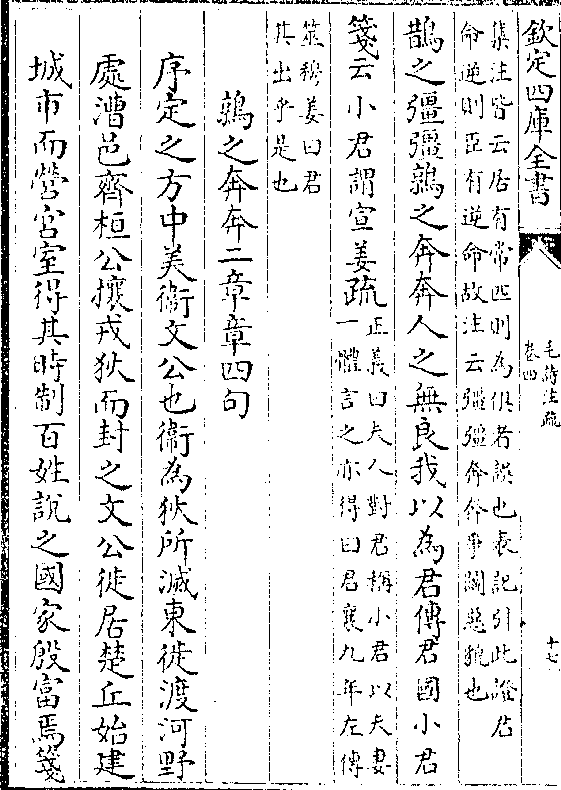 欽定四庫全書
毛詩注疏
卷四
十七
集注皆云居有常匹則為俱者誤也表記引此證君
命逆則臣有逆命故注云彊彊奔奔爭鬬惡貌也
鵲之彊彊鶉之奔奔人之無良我以為君傳君國小君
箋云小君謂宣姜疏正義曰夫人對君稱小君以夫妻
一體言之亦得曰君襄九年左傳
筮穆姜曰君
其出乎是也
鶉之奔奔二章章四句
序定之方中美衞文公也衞為狄所滅東徙渡河野
處漕邑齊桓公攘戎狄而封之文公徙居楚丘始建
城市而營宮室得其時制百姓說之國家殷富焉箋